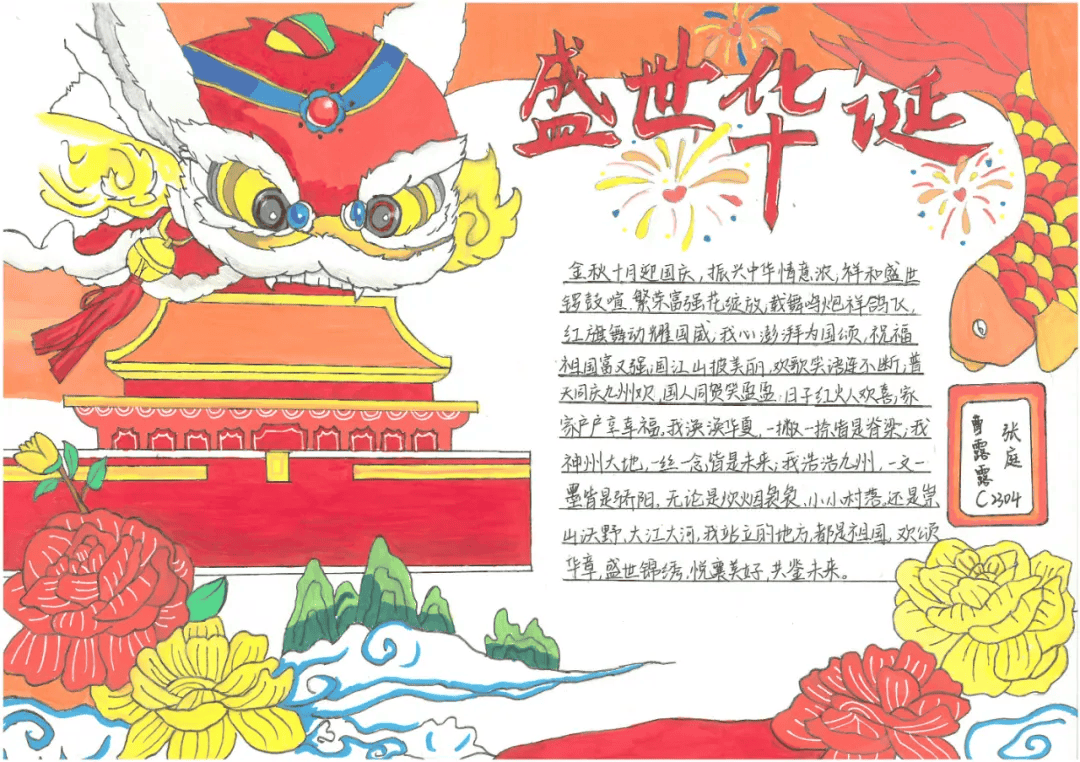 盛世华诞
金秋十月迎国庆,振兴中华情意浓;祥和盛世
锣鼓喧,繁荣富强花绽放;载舞鸣炮祥鸽飞,
红旗舞动耀国威;我心澎湃为国颂,祝福
祖国富又强;国江山披美丽,欢歌笑语连不断;普
天同庆九州欢,国人同贺笑盈盈;日子红火人欢喜;家
家户户享幸福。我泱泱华夏,一撇一捺皆是脊梁;我
神州大地,一丝一念皆是未来;我浩浩九州,一文一
墨皆是骄阳,无论是炊烟袅袅、小小村落。还是崇
山沃野,大江大河,我站立的地方,都是祖国,欢颂
华章,盛世锦绣,悦襄美好,共鉴未来。
张庭
曹露露
C2304